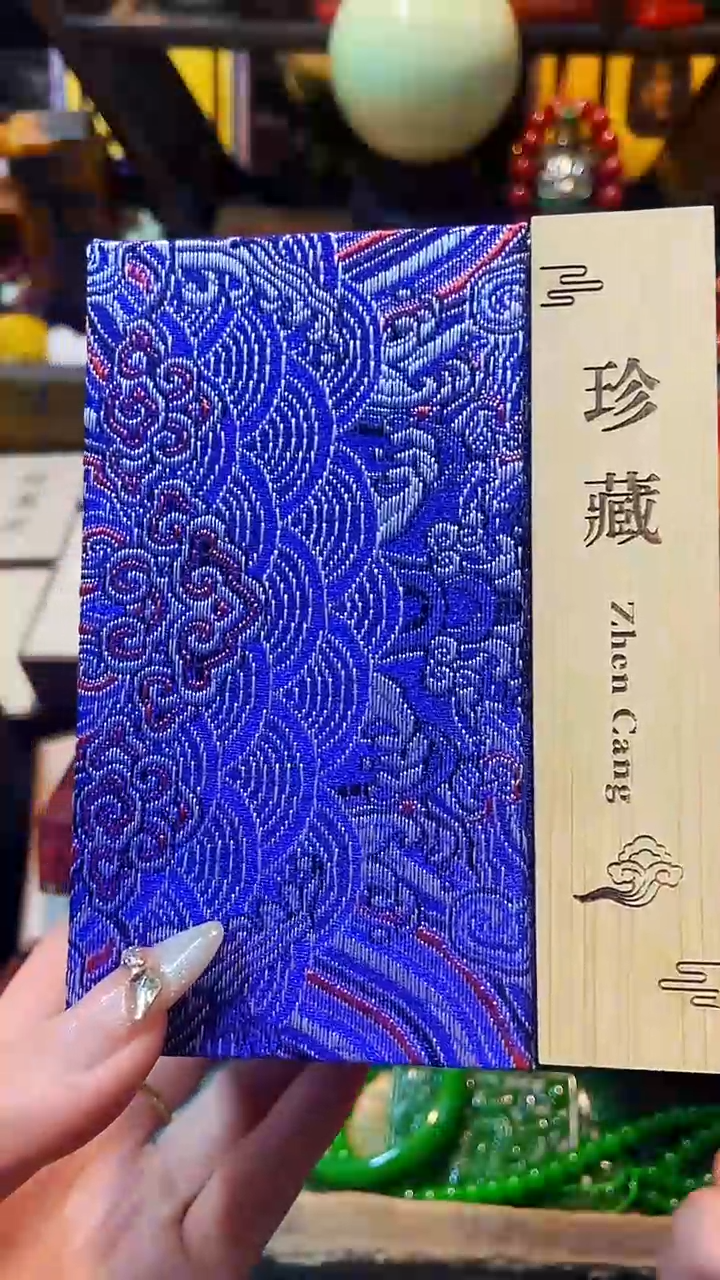 珍藏
Zhen Cang